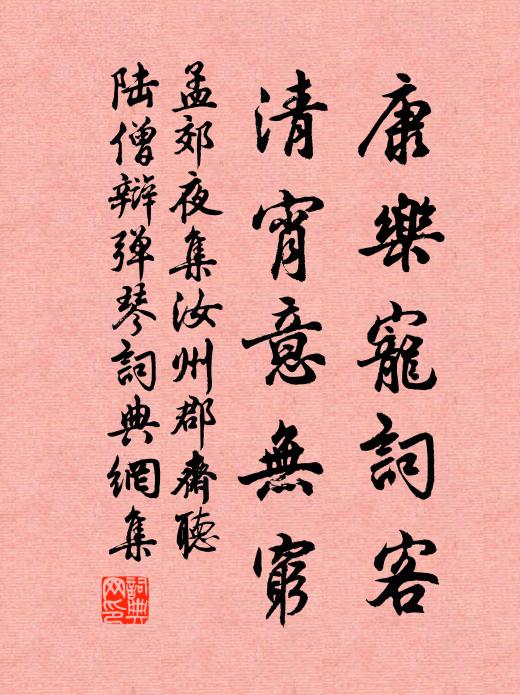 康樂寵詞客
清宵意無窮
孟郊夜集汝州郡齋聽
陸僧辯弹琴詞典網集
詞典
网印